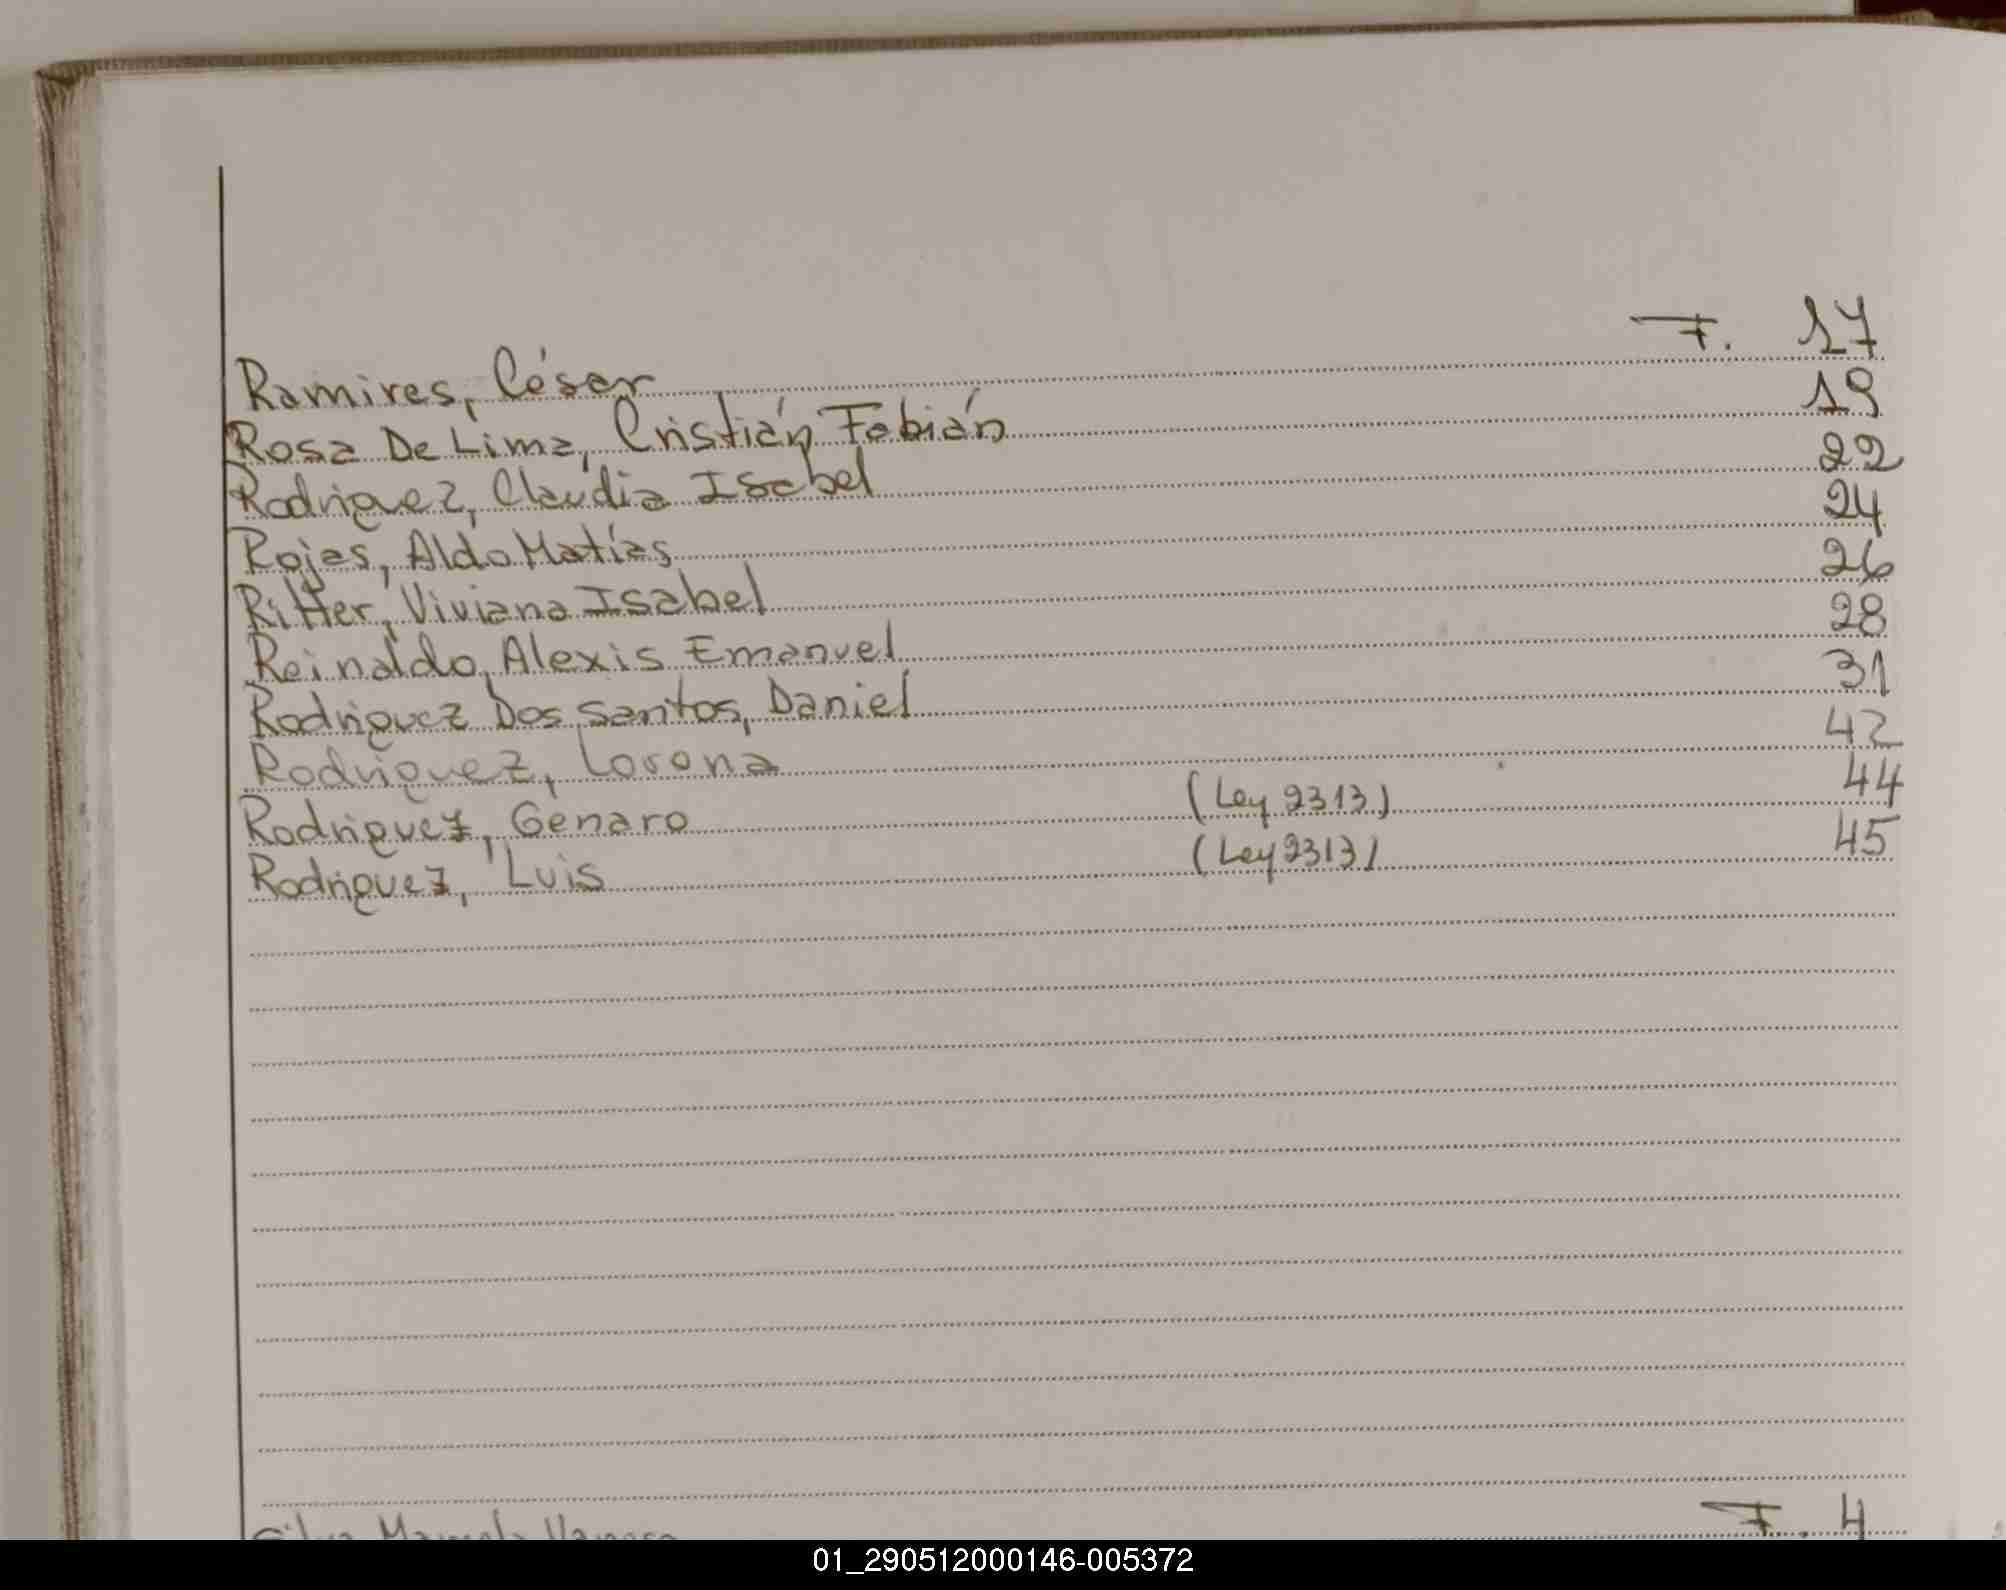 Ramires, César F. 17
Rosa De Lima, Cristián Fabián 19
Rodriguez, Claudia Isabel 22
Rojas, Aldo Matías 24
Ritter, Viviana Isabel 26
Reinaldo, Alexis Emanuel 28
Rodriguez Dos Santos, Daniel 31
Rodriguez, Lorena 42
Rodriguez, Genaro (Ley 2313) 44
Rodriguez, Luis (Ley 2313) 45
F. 4
01_290512000146-005372